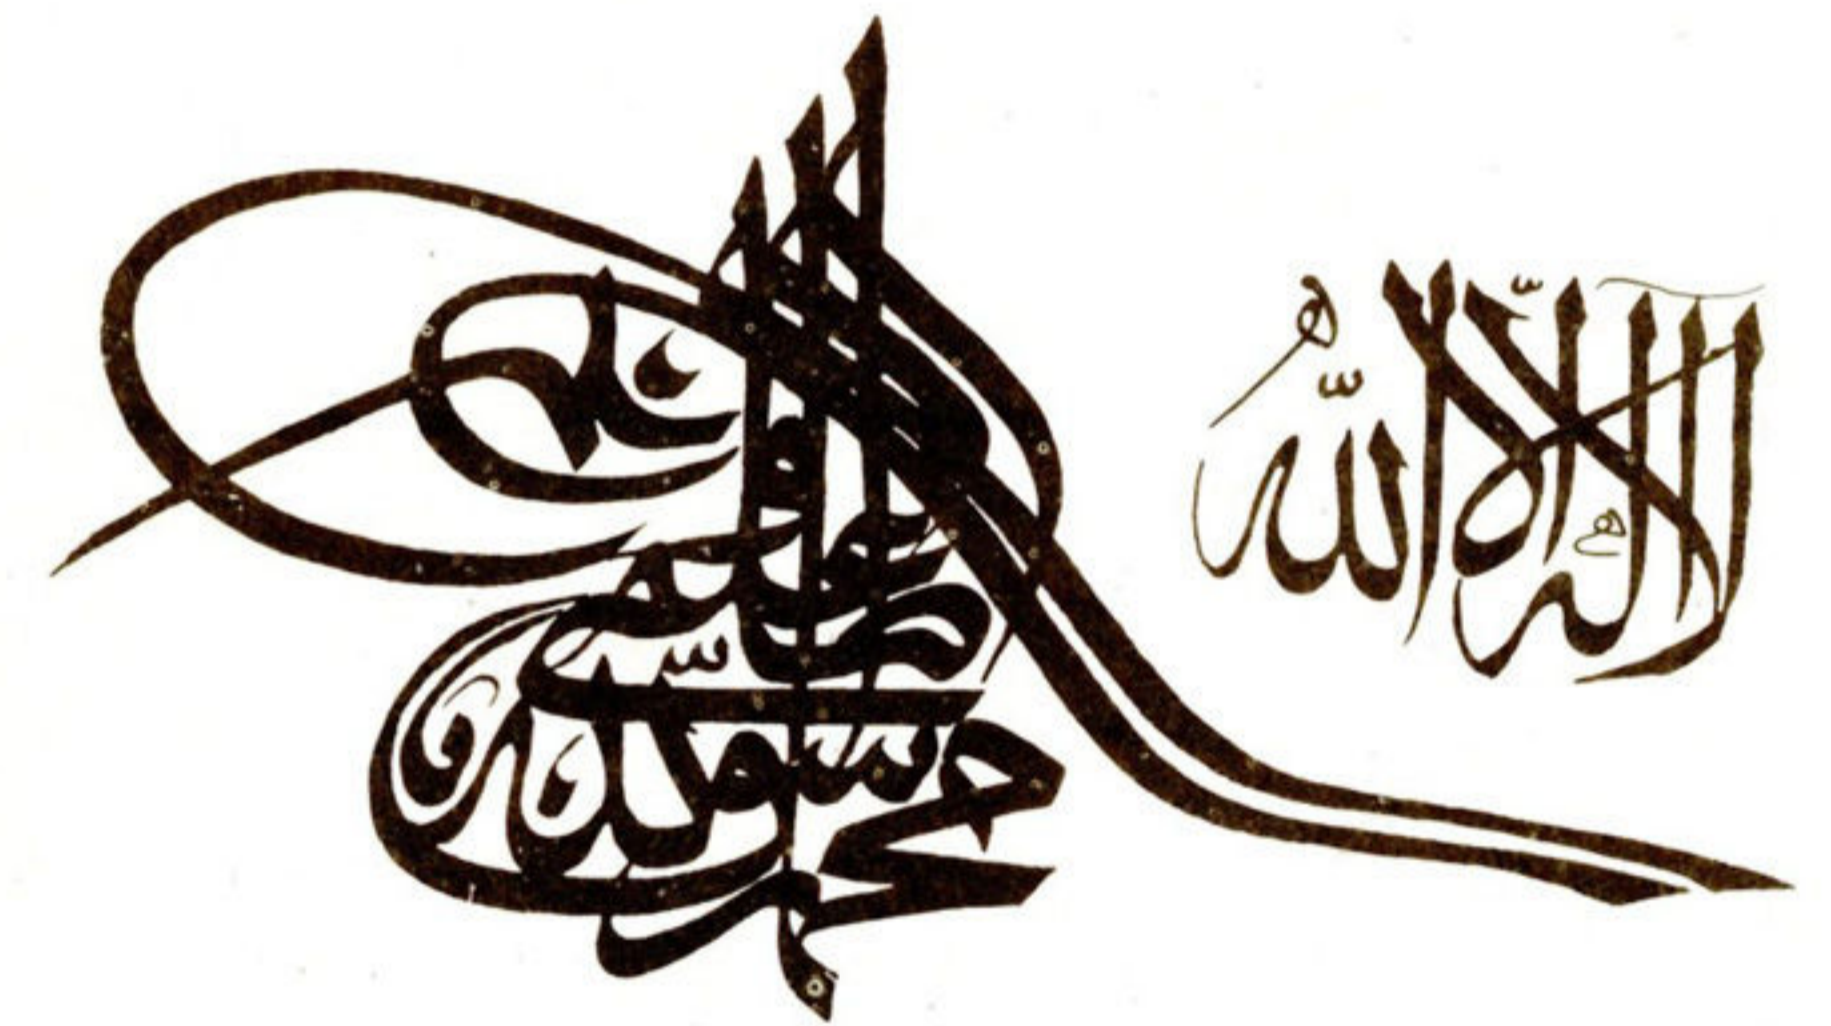 لا اله الا الله
محمد رسول الله
صلى الله عليه